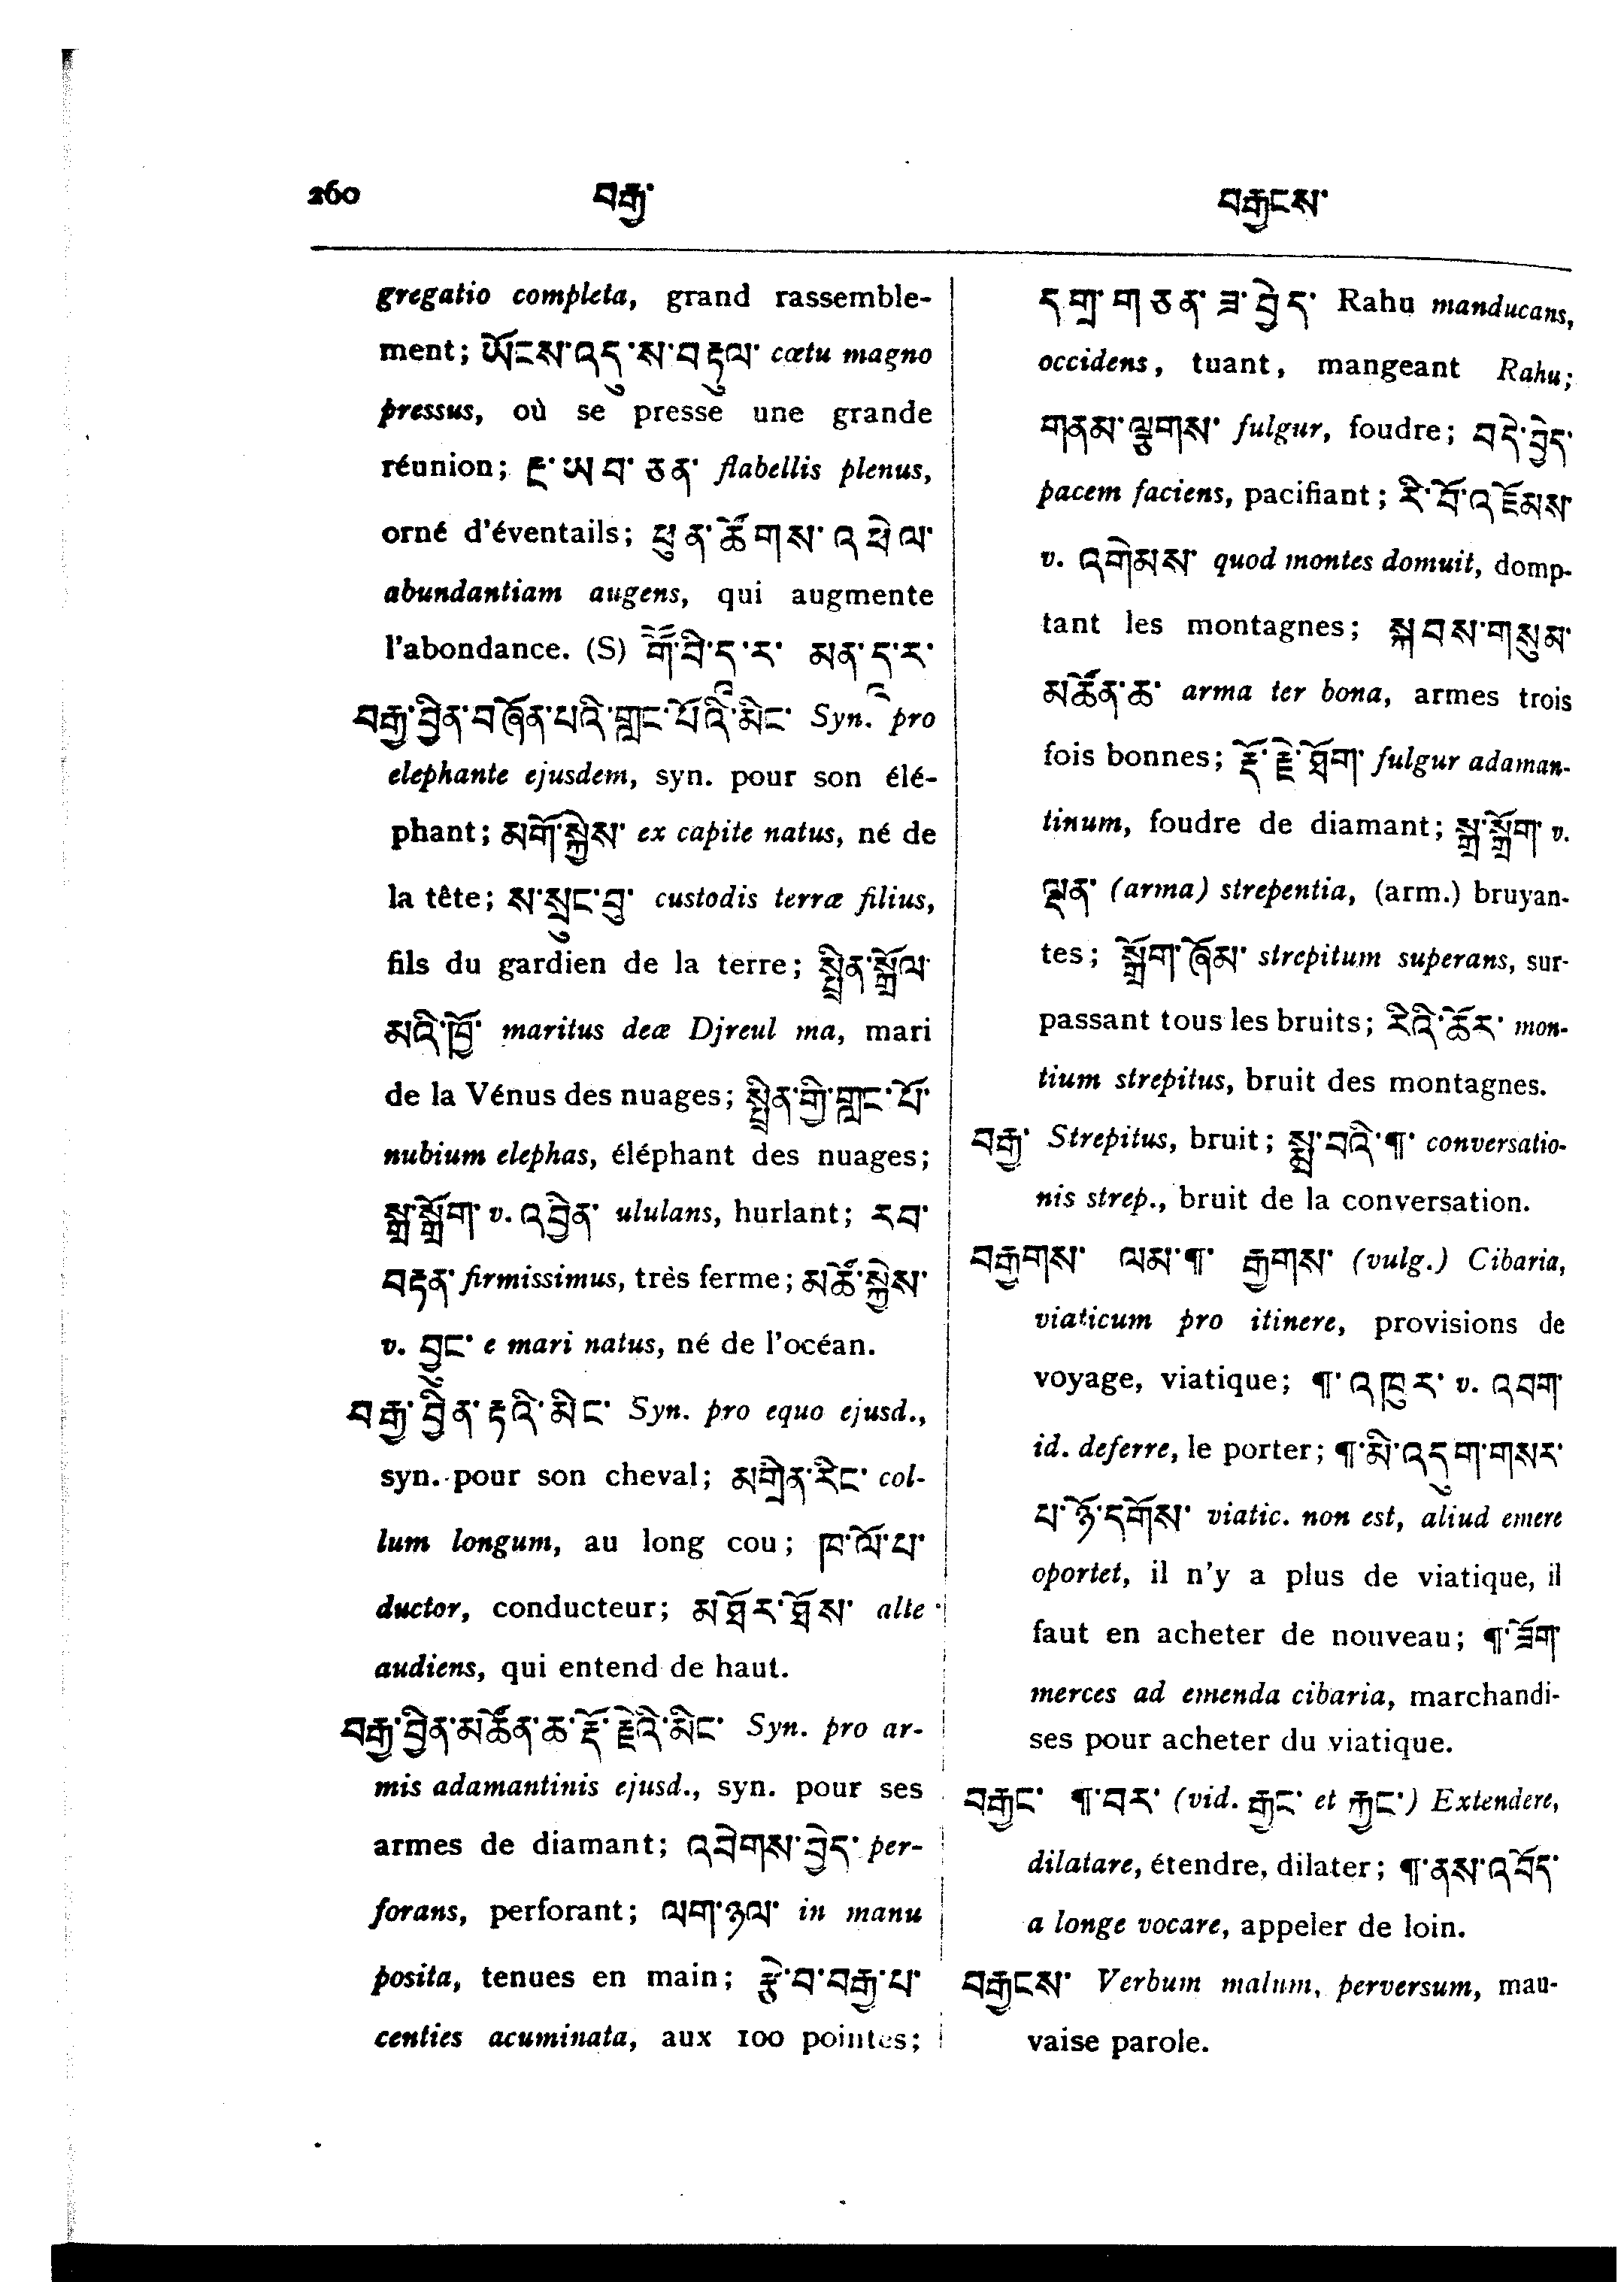 260 བརྒྱ་ བརྒྱངས་
gregatio completa, grand rassemble-
ment; ཡོངས་འདུ་ས་བརྟུལ་ cœtu magno
pressus, où se presse une grande
réunion; རྔ་ཡབ་ཅན་ flabellis plenus,
orné d'éventails; ཕུན་ཚོགས་འཕེལ་
abundantiam augens, qui augmente
l'abondance. (S) མན་དཱ་ར་
བརྒྱ་བྱིན་བཞོན་པའི་གླང་པོའི་མིང་ Syn. pro
elephante ejusdem, syn. pour son élé-
phant; མགོ་སྐྱེས་ ex capite natus, né de
la tête; ས་སྲུང་བུ་ custodis terræ filius,
fils du gardien de la terre; སྤྲིན་སྒྲོལ་
མའི་ཁྱོ་ maritus deæ Djreul ma, mari
de la Vénus des nuages; སྤྲིན་གྱི་གླང་པོ་
nubium elephas, éléphant des nuages;
སྒྲ་སྒྲོག་ v. འབྱིན་ ululans, hurlant; རབ་
བརྟན་ firmissimus, très ferme; མཚོ་སྐྱེས་
v. བྱུང་ e mari natus, né de l'océan.
བརྒྱ་བྱིན་རྟའི་མིང་ Syn. pro equo ejusd.,
syn. pour son cheval; མགྲིན་རིང་ col-
lum longum, au long cou; ཁ་ལོ་པ་
ductor, conducteur; མཐོར་ཐོས་ alte
audiens, qui entend de haut.
བརྒྱ་བྱིན་མཚོན་ཆ་རྡོ་རྗེའི་མིང་ Syn. pro ar-
mis adamantinis ejusd., syn. pour ses
armes de diamant; འབིགས་བྱེད་ per-
forans, perforant; ལག་ཉལ་ in manu
posita, tenues en main; རྩེ་བ་བརྒྱ་པ་
centies acuminata, aux 100 pointes;
ད་གྲ་གཅན་ཟ་བྱེད་ Rahu manducans,
occidens, tuant, mangeant Rahu;
གནམ་ལྕགས་ fulgur, foudre; བདེ་བྱེད་
pacem faciens, pacifiant; རི་བོ་འཇོམས་
v. འགེམས་ quod montes domuit, domp-
tant les montagnes; སྐབས་གསུམ་
མཚོན་ཆ་ arma ter bona, armes trois
fois bonnes; རྡོ་རྗེ་ཐོག་ fulgur adaman-
tinum, foudre de diamant; སྒྲ་སྒྲོག་ v.
ལྡན་ (arma) strepentia, (arm.) bruyan-
tes; སྒྲོག་ཞོམ་ strepitum superans, sur-
passant tous les bruits; རིའི་ཚོར་ mon-
tium strepitus, bruit des montagnes.
བརྒྱ་ Strepitus, bruit; སྨྲ་བའི་¶་ conversatio-
nis strep., bruit de la conversation.
བརྒྱགས་ ལམ་¶་ རྒྱགས་ (vulg.) Cibaria,
viaticum pro itinere, provisions de
voyage, viatique; ¶་འཁུར་ v. འབག་
id. deferre, le porter; ¶་མི་འདུག་གསར་
པ་ཉོ་དགོས་ viatic. non est, aliud emere
oportet, il n'y a plus de viatique, il
faut en acheter de nouveau; ¶་ཟོག་
merces ad emenda cibaria, marchandi-
ses pour acheter du viatique.
བརྒྱང་ ¶་བར་ (vid. རྒྱང་ et རྐྱང་) Extendere,
dilatare, étendre, dilater; ¶་ནས་འབོད་
a longe vocare, appeler de loin.
བརྒྱངས་ Verbum malum, perversum, mau-
vaise parole.